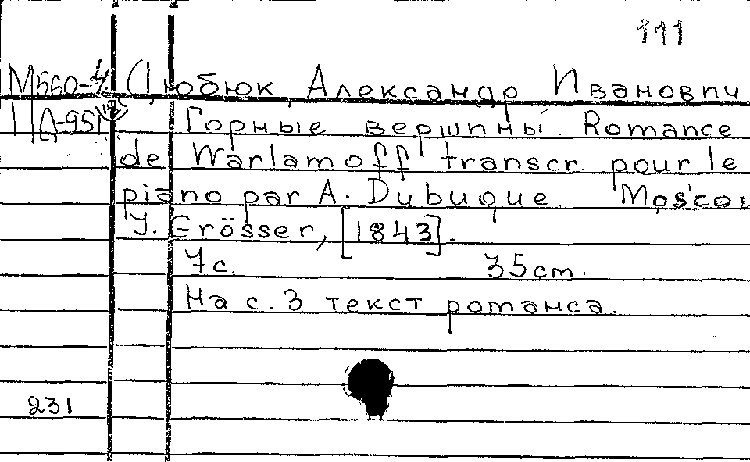 111
М560-4 Дюбюк, Александр Иванович
Д-951 Горные вершины. Romance
de Warlamoff transcr. pour le
piano par A. Dubuque. Moscou
J. Grösser, [1843].
7с. 35cm.
На с. 3 текст романса.
231